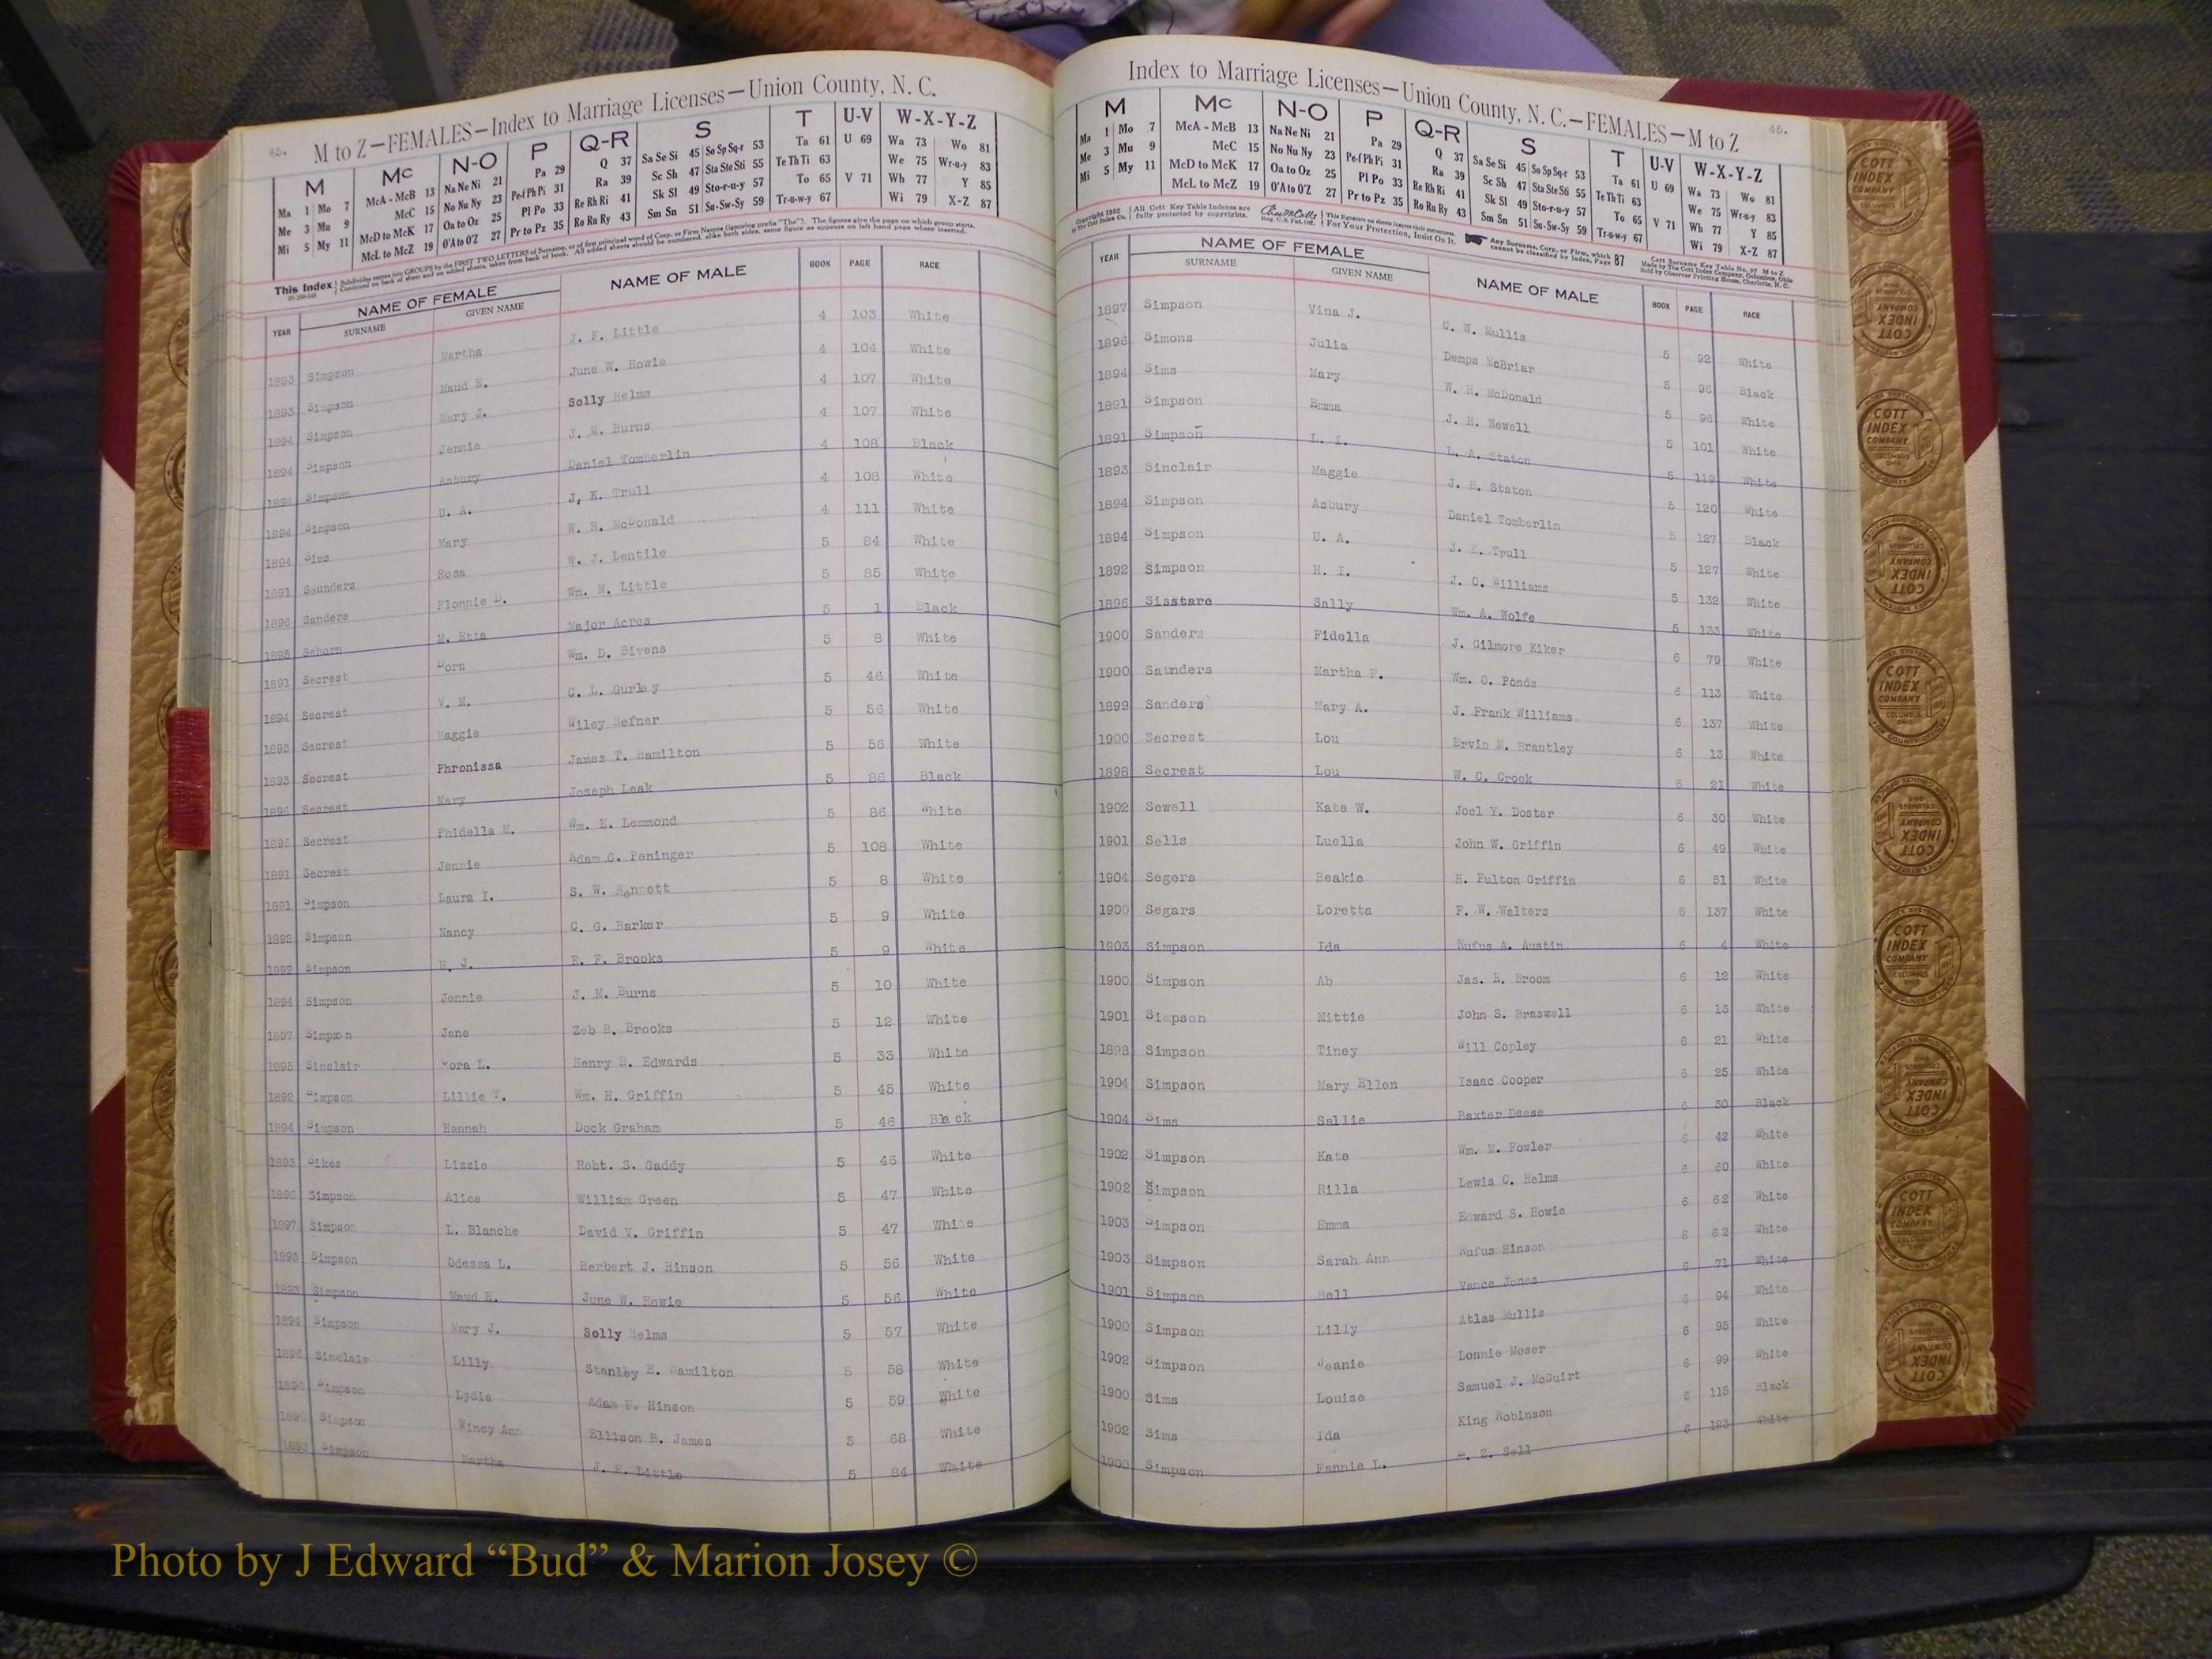 45.
M to Z—FEMALES—Index to Marriage Licenses—Union County, N. C.
M Mc N-O P Q-R S T U-V W-X-Y-Z
Ma 1 Mo 7 McA - McB 13 Na Ne Ni 21 Pa 29 Q 37 Sa Se Si 45 So Sp Sq-r 53 Ta 61 U 69 Wa 73 Wo 81
Me 3 Mu 9 McC 15 No Nu Ny 23 Pe-f Ph Pi 31 Ra 39 Sc Sh 47 Sta Ste Sti 55 Te Th Ti 63 We 75 Wr-u-y 83
Mi 5 My 11 McD to McK 17 Oa to Oz 25 Pl Po 33 Re Rh Ri 41 Sk Sl 49 Sto-r-u-y 57 To 65 V 71 Wh 77 Y 85
McL to McZ 19 O'A to O'Z 27 Pr to Pz 35 Ro Ru Ry 43 Sm Sn 51 Su-Sw-Sy 59 Tr-u-w-y 67 Wi 79 X-Z 87
This Index Subdivides names into GROUPS by the FIRST TWO LETTERS of Surname, or of first principal word of Corp. or Firm Names (ignoring prefix "The"). The figures give the page on which group starts.
Continued on back of sheet and on added sheets, taken from back of book. All added sheets should be numbered, alike both sides, same figure as appears on left hand page where inserted.
YEAR NAME OF FEMALE NAME OF MALE BOOK PAGE RACE
SURNAME GIVEN NAME
1893 Simpson Martha J. F. Little 4 103 White
1893 Simpson Maud E. June W. Howie 4 104 White
1894 Simpson Mary J. Solly Helms 4 107 White
1894 Simpson Jennie J. M. Burns 4 107 White
1894 Simpson Asbury Daniel Tomberlin 4 108 Black
1894 Simpson U. A. J. K. Trull 4 108 White
1894 Sims Mary W. R. McDonald 4 111 White
1891 Saunders Rosa W. J. Lentile 5 84 White
1896 Sanders Flonnie D. Wm. M. Little 5 85 White
1895 Seborn M. Etta Major Acres 5 1 Black
1891 Secrest Dora Wm. D. Bivens 5 8 White
1894 Secrest V. M. C. L. Gurley 5 46 White
1893 Secrest Maggie Wiley Hefner 5 56 White
1893 Secrest Phronissa James T. Hamilton 5 56 White
1896 Secrest Mary Joseph Leak 5 86 Black
1895 Secrest Phidella M. Wm. E. Lemmond 5 86 White
1891 Secrest Jennie Adam C. Peninger 5 108 White
1891 Simpson Laura I. S. W. Bennett 5 8 White
1892 Simpson Nancy C. G. Barker 5 9 White
1892 Simpson H. J. E. F. Brooks 5 9 White
1894 Simpson Jennie J. M. Burns 5 10 White
1897 Simpson Jane Zeb B. Brooks 5 12 White
1895 Sinclair Cora L. Henry B. Edwards 5 33 White
1892 Simpson Lillie T. Wm. H. Griffin 5 45 White
1894 Simpson Hannah Dock Graham 5 46 Black
1893 Sikes Lizzie Robt. S. Gaddy 5 46 White
1896 Simpson Alice William Green 5 47 White
1897 Simpson L. Blanche David V. Griffin 5 47 White
1893 Simpson Odessa L. Herbert J. Hinson 5 56 White
1893 Simpson Maud E. June W. Howie 5 56 White
1894 Simpson Mary J. Solly Helms 5 57 White
1896 Sinclair Lilly Stanley E. Hamilton 5 58 White
1896 Simpson Lydia Adam F. Hinson 5 59 White
Simpson Wincy Ann Ellison B. James 5 68 White
1893 Simpson Martha J. F. Little 5 84 White
Index to Marriage Licenses—Union County, N. C.—FEMALES—M to Z
45.
M Mc N-O P Q-R S T U-V W-X-Y-Z
Ma 1 Mo 7 McA - McB 13 Na Ne Ni 21 Pa 29 Q 37 Sa Se Si 45 So Sp Sq-r 53 Ta 61 U 69 Wa 73 Wo 81
Me 3 Mu 9 McC 15 No Nu Ny 23 Pe-f Ph Pi 31 Ra 39 Sc Sh 47 Sta Ste Sti 55 Te Th Ti 63 We 75 Wr-u-y 83
Mi 5 My 11 McD to McK 17 Oa to Oz 25 Pl Po 33 Re Rh Ri 41 Sk Sl 49 Sto-r-u-y 57 To 65 V 71 Wh 77 Y 85
McL to McZ 19 O'A to O'Z 27 Pr to Pz 35 Ro Ru Ry 43 Sm Sn 51 Su-Sw-Sy 59 Tr-u-w-y 67 Wi 79 X-Z 87
All Cott Key Table Indexes are fully protected by copyrights.
For Your Protection, Insist On It.
Any Surname, Corp. or Firm, which cannot be classified by Index, Page 87
Made by The Cott Index Company, Columbus, Ohio
Sold by Observer Printing House, Charlotte, N. C.
YEAR NAME OF FEMALE NAME OF MALE BOOK PAGE RACE
SURNAME GIVEN NAME
1897 Simpson Vina J. C. W. Mullis 5 92 White
1896 Simons Julia Demps McBriar 5 95 Black
1894 Sims Mary W. R. McDonald 5 96 White
1891 Simpson Emma J. H. Newell 5 101 White
1891 Simpson L. I. L. A. Staton 5 119 White
1893 Sinclair Maggie J. B. Staton 5 120 White
1894 Simpson Asbury Daniel Tomberlin 5 127 Black
1894 Simpson U. A. J. K. Trull 5 127 White
1892 Simpson H. I. J. C. Williams 5 132 White
1896 Sisstare Sally Wm. A. Wolfe 5 133 White
1900 Sanders Fidella J. Gilmore Kiker 6 79 White
1900 Saunders Martha F. Wm. O. Ponds 6 113 White
1899 Sanders Mary A. J. Frank Williams 6 137 White
1900 Secrest Lou Ervin M. Brantley 6 13 White
1898 Secrest Lou W. C. Crook 6 21 White
1902 Sewell Kate W. Joel Y. Doster 6 30 White
1901 Sells Luella John W. Griffin 6 49 White
1904 Segers Beakie H. Fulton Griffin 6 51 White
1900 Segars Loretta F. W. Walters 6 137 White
1903 Simpson Ida Rufus A. Austin 6 4 White
1900 Simpson Ab Jas. B. Broom 6 12 White
1901 Simpson Mittie John S. Braswell 6 13 White
1898 Simpson Tiney Will Copley 6 21 White
1904 Simpson Mary Ellen Isaac Cooper 6 25 White
1904 Sims Sallie Baxter Deese 6 30 Black
1902 Simpson Kate Wm. M. Fowler 6 42 White
1902 Simpson Rilla Lewis C. Helms 6 60 White
1903 Simpson Emma Edward S. Howie 6 62 White
1903 Simpson Sarah Ann Rufus Hinson 6 62 White
1901 Simpson Bell Vance Jones 6 71 White
1900 Simpson Lilly Atlas Mullis 6 94 White
1902 Simpson Jeanie Lonnie Moser 6 95 White
1900 Sims Louise Samuel J. McGuirt 6 99 White
1902 Sims Ida King Robinson 6 115 Black
1900 Simpson Fannie L. Z. Sell 6 123 White
COTT INDEX COMPANY
Photo by J Edward “Bud” & Marion Josey ©